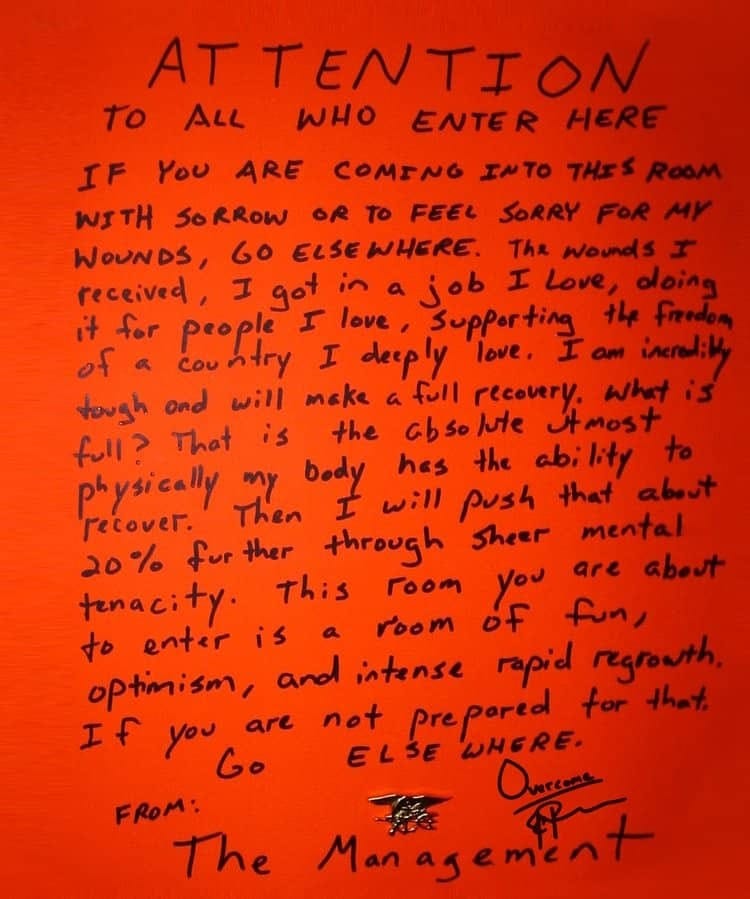 ATTENTION
TO ALL WHO ENTER HERE
IF YOU ARE COMING INTO THIS ROOM
WITH SORROW OR TO FEEL SORRY FOR MY
WOUNDS, GO ELSEWHERE. The wounds I
received, I got in a job I Love, doing
it for people I love, supporting the freedom
of a country I deeply love. I am incredibly
tough and will make a full recovery. What is
full? That is the absolute utmost
physically my body has the ability to
recover. Then I will push that about
20% further through sheer mental
tenacity. This room you are about
to enter is a room of fun,
optimism, and intense rapid regrowth.
If you are not prepared for that.
Go ELSEWHERE.
Overcome
FROM:
The Management